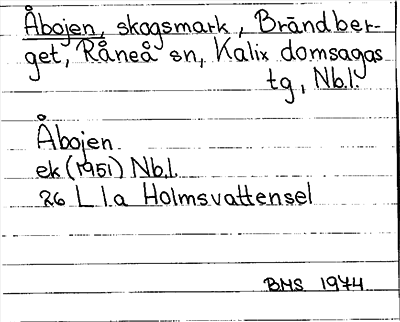 Åbojen, skogsmark, Brändber-
get, Råneå sn, Kalix domsagas
tg, Nb.l.
Åbojen
ek (1951) Nb.l.
26 L l.a Holmsvattensel
BMS 1974